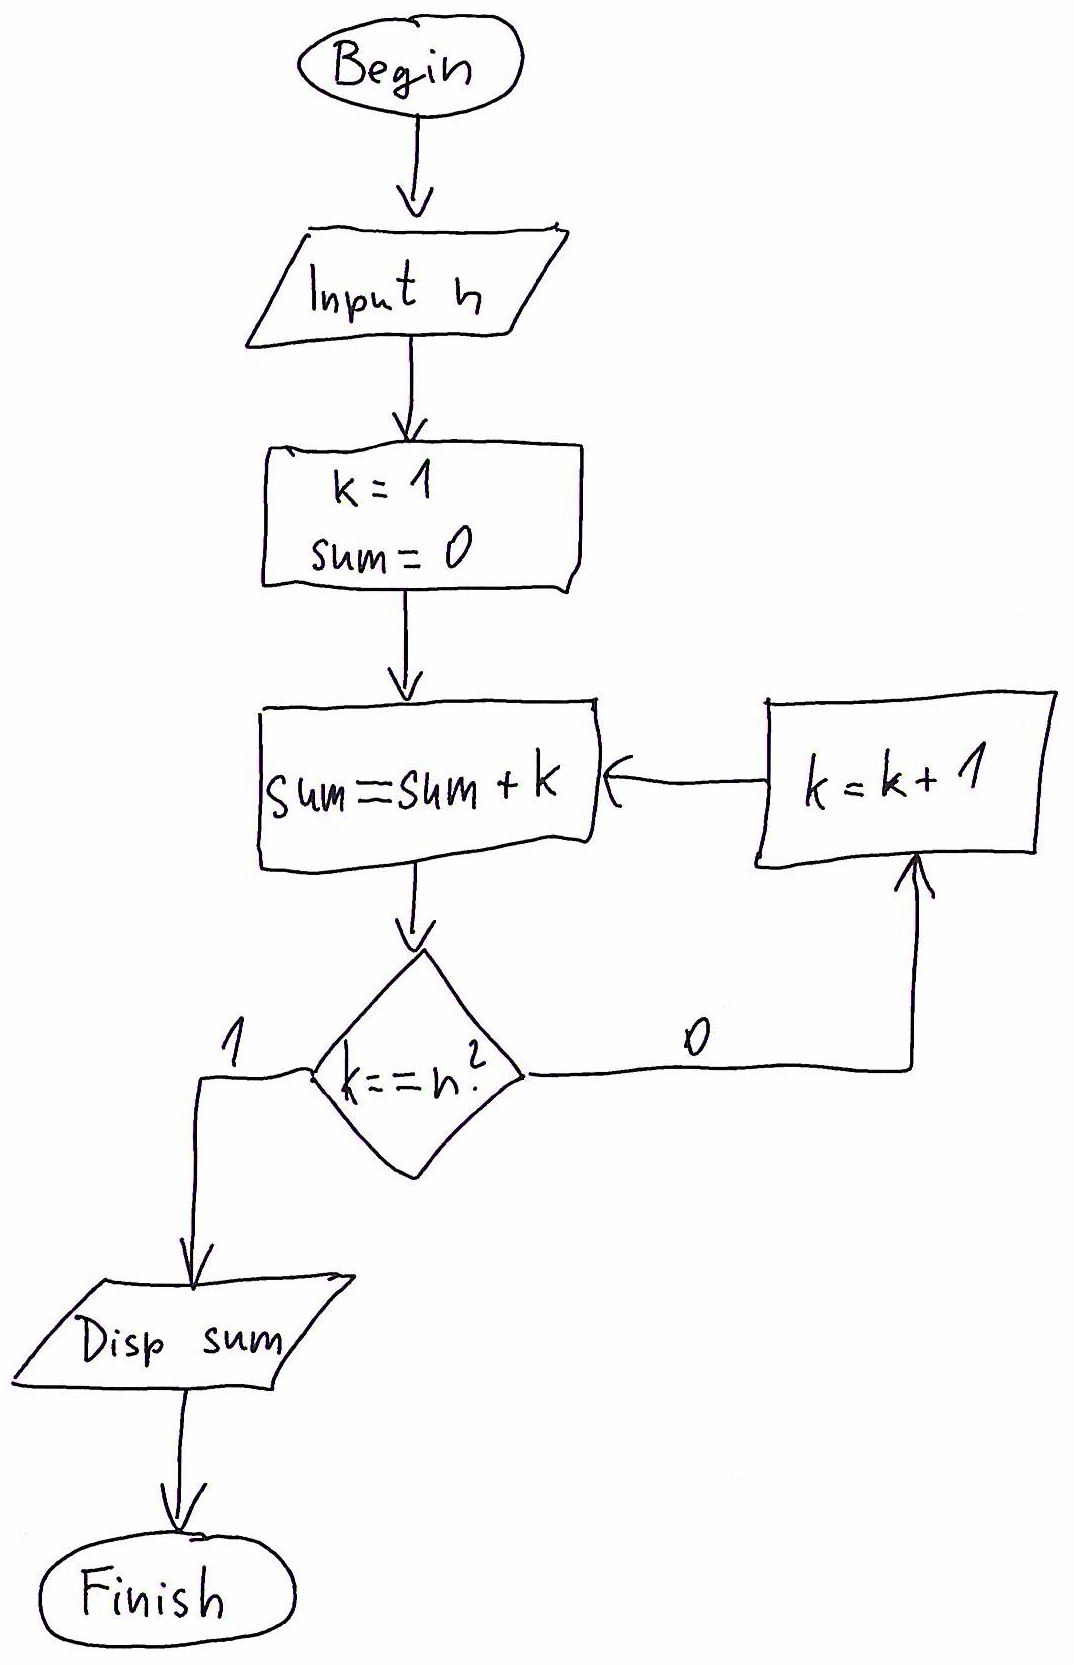 Begin
Input n
k = 1
sum = 0
sum = sum + k
k = k + 1
k == n?
1
0
Disp sum
Finish